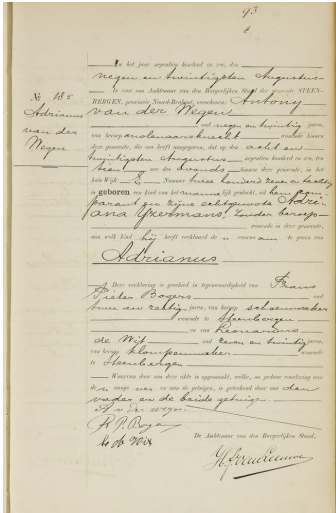 93
In het jaar negentien honderd en zes, den
negen en twintigsten Augustus
is voor ons Ambtenaar van den Burgerlijken Stand der gemeente STEEN-
BERGEN, provincie Noord-Brabant, verschenen: Antony
van der Wegen
oud negen en twintig jaren,
van beroep molenaarsknecht wonende binnen
deze gemeente, die ons heeft aangegeven, dat op den acht en
twintigsten Augustus negentien honderd en zes,
ten tien ure des avonds binnen deze gemeente, in het
huis Wijk E Nummer twee honderd zeven en tachtig
is geboren een kind van het mannelijk geslacht, uit hem com-
parant en zijne echtgenoote Adri-
ana Yzermans, zonder beroep
wonende in deze gemeente,
aan welk kind hij heeft verklaard de voornaam te geven van
Adrianus
No 185
Adrianus
van der
Wegen
Deze verklaring is geschied in tegenwoordigheid van Frans
Pieter Bogers oud
twee en zestig jaren, van beroep schoenmaker
wonende te Steenbergen
en van Leonardus
de Wit oud zeven en twintig jaren,
van beroep klompenmaker wonende
te Steenbergen
Waarvan door ons deze akte is opgemaakt, welke, na gedane voorlezing aan
de aangever en aan de getuigen, is geteekend door ons den
vader en de beide getuigen
A v der wegen
De Ambtenaar van den Burgerlijken Stand,